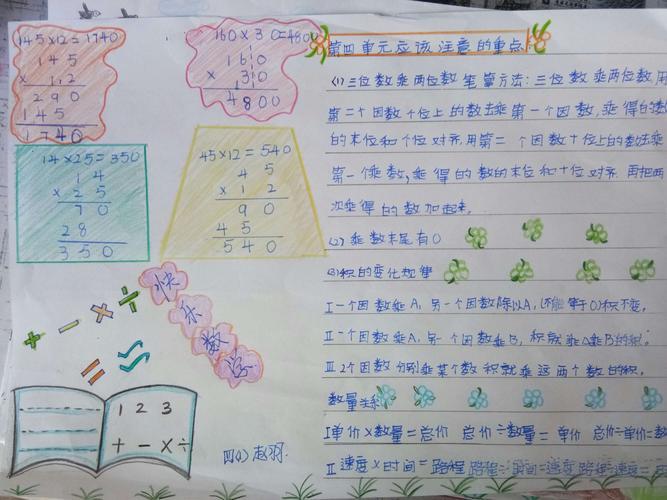 145×12=1740
145
× 12
290
145
1740
160×30=4800
160
× 30
4800
14×25=350
14
× 25
70
28
350
45×12=540
45
× 12
90
45
540
快乐数学
+ - × ÷
= ≈
1 2 3
+ - × ÷
四(1) 赵羽
第四单元应该注意的重点:
(1)三位数乘两位数笔算方法:三位数乘两位数,用
第二个因数个位上的数去乘第一个因数,乘得的数
的末位和个位对齐.用第二个因数十位上的数去乘
第一个乘数,乘得的数的末位和十位对齐.再把两
次乘得的数加起来。
(2)乘数末尾有0
(3)积的变化规律
I一个因数乘A,另一个因数除以A,(不能等于0)积不变。
II一个因数乘A,另一个因数乘B,积就乘A乘B的积。
III 2个因数分别乘某个数积就乘这两个数的积。
数量关系
I单价×数量=总价 总价÷数量=单价 总价÷单价=数
II速度×时间=路程 路程÷时间=速度 路程÷速度=